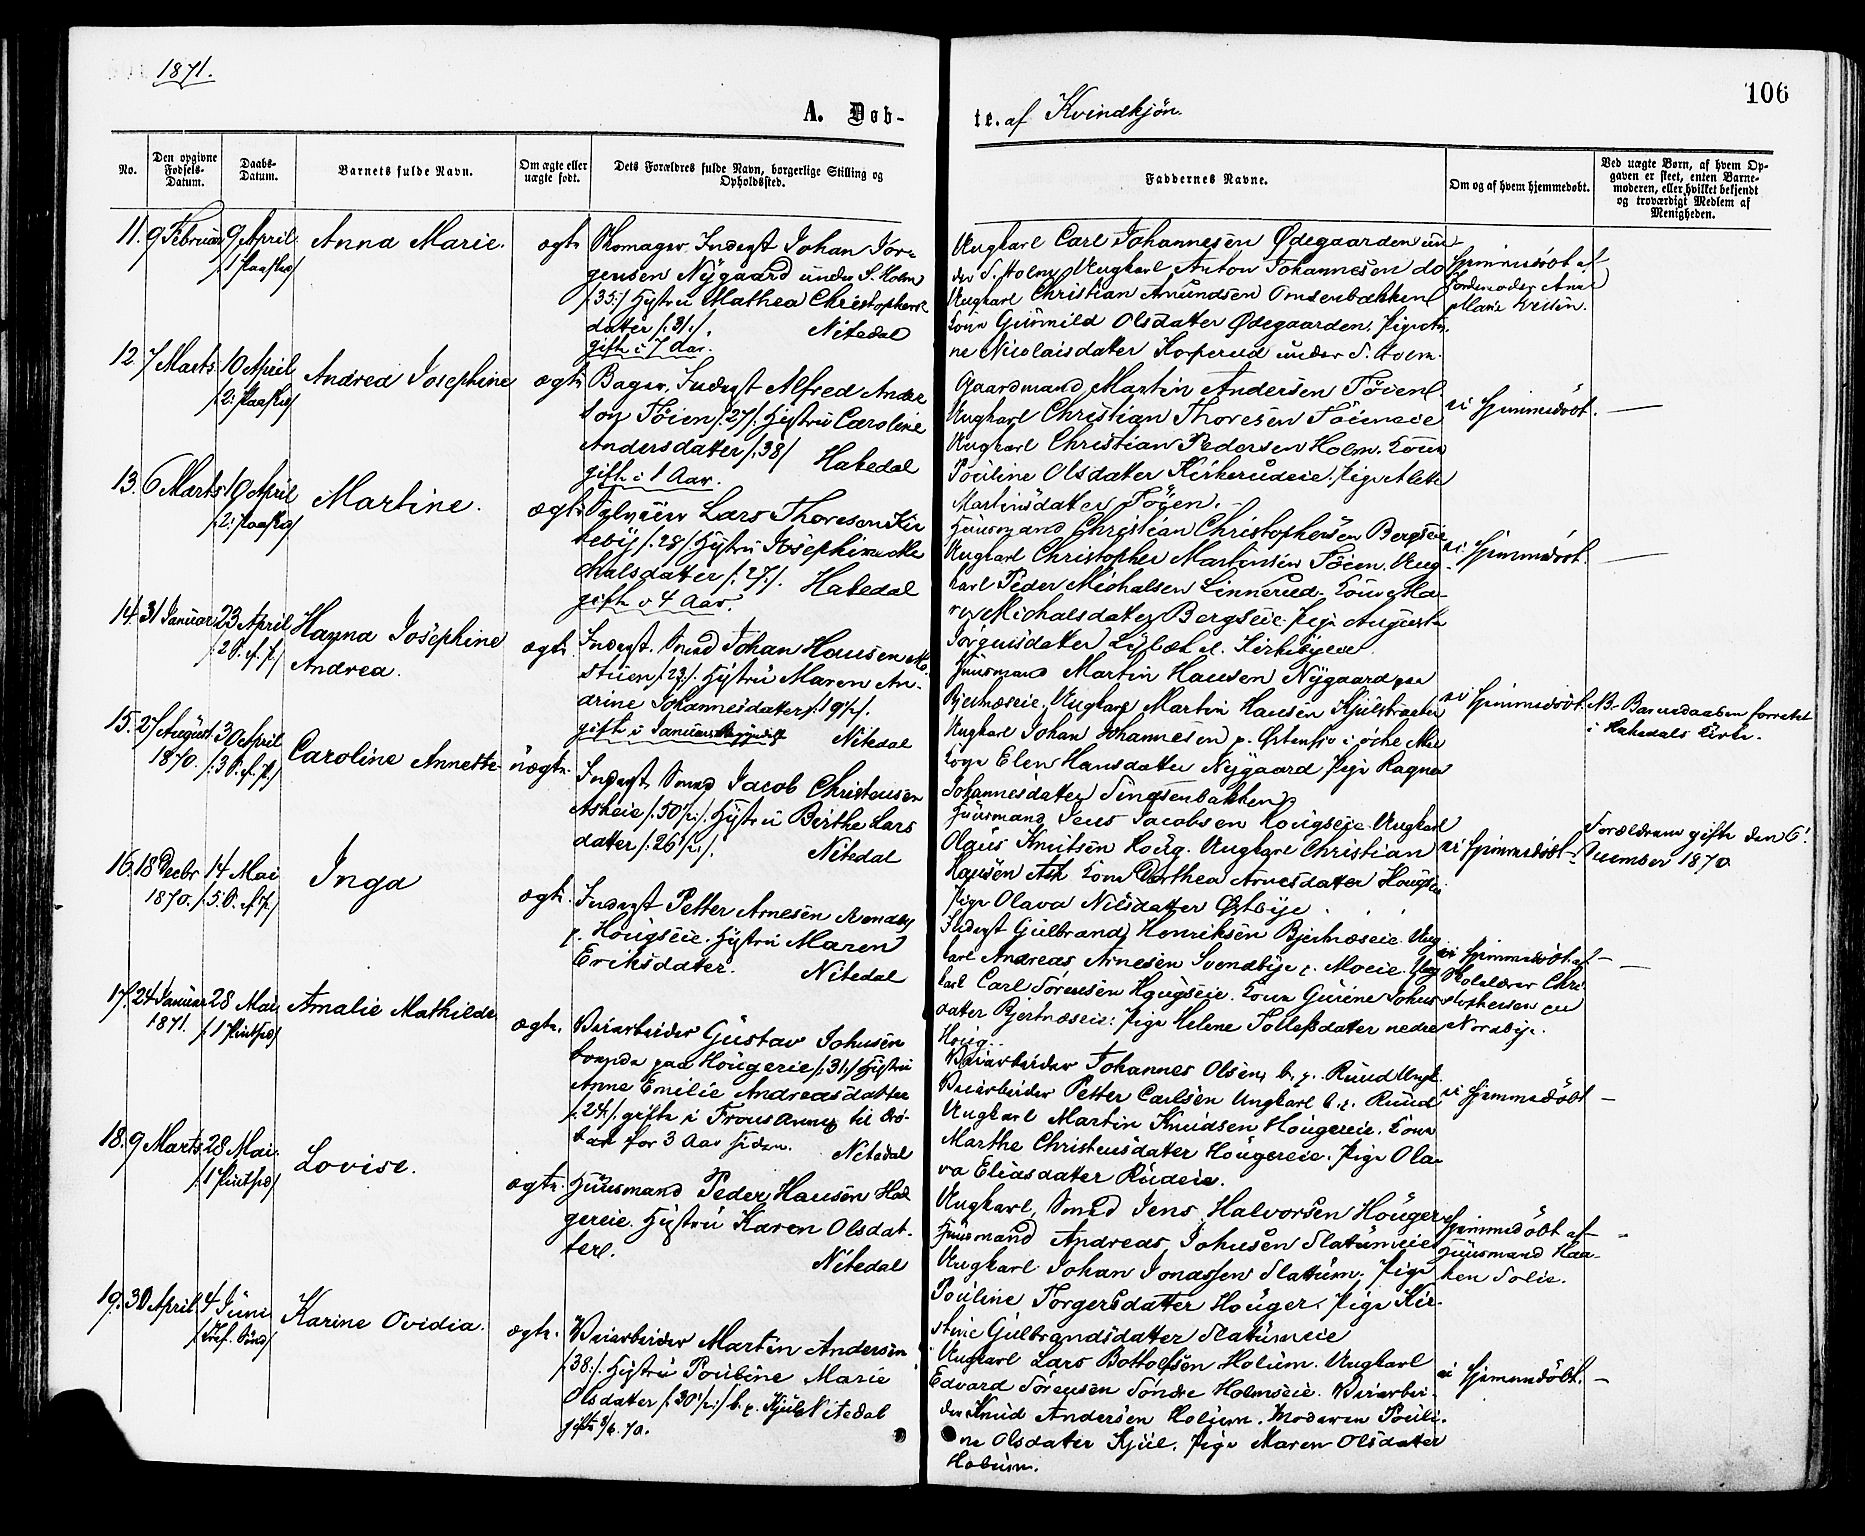 1871.
106
A. Døb-
te. af Kvindkjøn.
No.
Den opgivne Fødsels-Datum.
Daabs-Datum.
Barnets fulde Navn.
Om ægte eller uægte født.
Dets Forældres fulde Navn, borgerlige Stilling og Opholdssted.
Faddernes Navne.
Om og af hvem hjemmedøbt.
Ved uægte Børn, af hvem Opgaven er skeet, enten Barnemoderen, eller hvilket bekjendt og troværdigt Medlem af Menigheden.
11. 9 Februar 9 April Anna Marie. ægte
/1 Paaskd/
Skomager, Inderst Johan Jør-
gensen Nÿgaard under S. Holm
/:35:/ Hÿstru Mathea Christophers-
datter /:31:/. Nitedal
gifte i 7 Aar.
Ungkarl Carl Johannesen Ødegaarden un-
der S. Holm, Ungkarl Anton Johannesen do
Ungkarl Christian Amundsen
Kone Gunnild Olsdatter Ødegaarden, Pige
ne Nicolaisdatter under S. Holm.
Hjemmedøbt af
Jordmoder Anne
Marie
12. 7 Marts 10 April Andrea Josephine ægte
/2: Paaskd/
Bager, Inderst Alfred Ander
son Töien /:27/. Hÿstru Caroline
Andersdatter /:38/ Hakedal
gifte i 1 Aar.
Gaardmand Martin Andersen Töien.
Ungkarl Christian Thoresen Töieneie
Ungkarl Christian Pedersen Holm. Kone
Pouline Olsdatter Kirkerudeie. Pige Alette
Martinsdatter Töien.
ei Hjemmedöbt. —
13. 6 Marts 10 April Martine. ægte
/2: Paaskd/
Lars Thoresen Kir
kebÿ /:28/ Hÿstru Josephine Mi
chalsdatter /:27:/. Hakedal
gifte i 4 Aar.
Huusmand Christian Christophersen Bergseie
Ungkarl Christopher Martinsen Töien. Ung-
karl Peder Michalsen Linnerud. Kone Ma-
ren Michalsdatter Bergseie. Pige Augusta
Jörgensdatter Kirkebÿeie.
ei Hjemmedöbt. —
14. 31 Januar 23 April Hanna Josephine ægte
/2 S. ef. P./ Andrea.
Inderst. Smed Johan Hansen Mo
stuen /:23:/. Hÿstru Maren An-
drine Johannesdatter /:19½/.
gifte i Januars Begyndelse Nitedal
Huusmand Martin Hansen Nÿgaard paa
Bjertnæseie. Ungkarl Martin Hansen Kjulstræter
Ungkarl Johan Johannesen p. Østensjo i
Kone Elen Hansdatter Nÿgaard Pige Ragna
Johannesdatter
ei Hjemmedöbt. NB. Barnedaaben forrettet
i Hakedals Kirke.
15. 27 August 30 April Caroline Annette. uægte.
1870. /:3 S. ef. P/
Inderst Smed Jacob Christensen
Askeie /:50½:/. Hÿstru Birthe Lars
datter /:26½:/. Nitedal
Huusmand Jens Jacobsen Hougseie. Ungkarl
Olaus Knutsen Houg. Ungkarl Christian
Hansen Ask Kone Dorthea Arnesdatter Hougseie
Pige Olava Nilsdatter Østbÿe.
ei Hjemmedöbt.
Forældrene gifte den 6.
December 1870.
16. 18 Decbr 14 Mai Inga ægte.
1870. /:5 S. ef. P/
Inderst Petter Arnesen
p. Hougseie. Hÿstru Maren
Eriksdatter. Nitedal
Inderst Gulbrand Henriksen Bjertnæseie. Ung
karl Andreas Arnesen Svendbÿe p. Moeie. Ung
karl Carl Sörensen Hougseie. Kone Gurine Johns
datter Bjertnæseie. Pige Helene Tollefsdatter nedre
Houg.
Hjemmedöbt af —
Skolelærer Chri-
stophersen
Nordbÿe.
17. 24 Januar 28 Mai Amalie Mathilde ægte.
1871. /1 Pintsd/
Veiarbeider Gustav Johnsen
boende paa Hougereie /:31/ Hÿstru
Anne Emilie Andreasdatter
/:24:/. gifte i
for 3 Aar siden. Nitedal
Veiarbeider Johannes Olsen, b. p. Ruud Ungk.
Veiarbeider Petter Carlsen Ungkarl b. p. Ruud
Ungkarl Martin Knudsen Hougereie. Kone
Marthe Christensdatter Hougereie. Pige Ola-
va Eliasdatter Rudeie.
ei Hjemmedöbt —
18. 9 Marts 28 Mai Lovise. ægte.
/1 Pintsd/
Huusmand Peder Hansen Hou
gereie. Hÿstru Karen Olsdat-
ter. Nitedal
Ungkarl, Smed Jens Halvorsen Houger
Huusmand Andreas Johnsen Slatumeie
Ungkarl Johan Jonassen Slattum. Pige
Pouline Torgersdatter Houger. Pige Kir-
stine Gulbrandsdatter Slatumeie
Hjemmedöbt af —
Huusmand Haa-
ken Solie.
19. 30 April 4 Juni Karine Ovidia. ægte.
/Tref. Sönd/
Veiarbeider Martin Andersen
/38:/. Hÿstru Pouline Marie
Olsdatter /:30½:/ b. p. Kjul Nitedal
gifte 3/6. 70.
Ungkarl Lars Bottolfsen Holum. Ungkarl
Edvard Sörensen Söndre Holmseie. Veiarbei-
der Knud Andersen Holum. Moderen Pouli-
ne Olsdatter Kjul. Pige Maren Olsdatter
Holum.
ei Hjemmedöbt. —